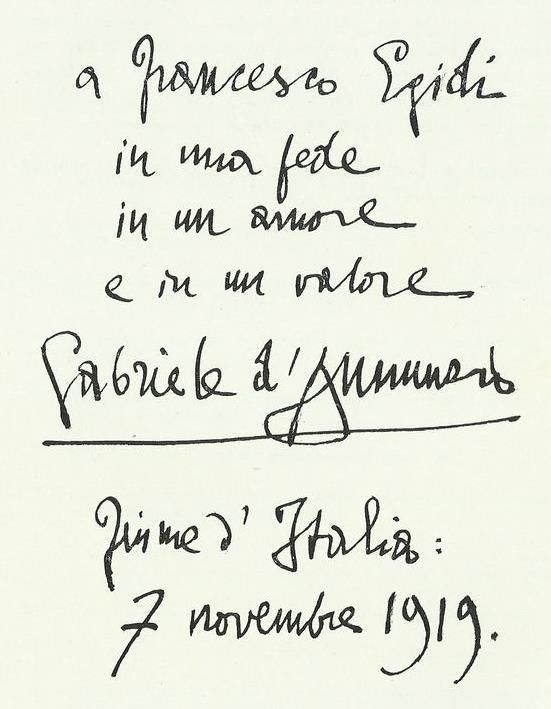 a Francesco Egidi
in una fede
in un amore
e in un valore
Gabriele d'Annunzio
Fiume d'Italia:
7 novembre 1919.